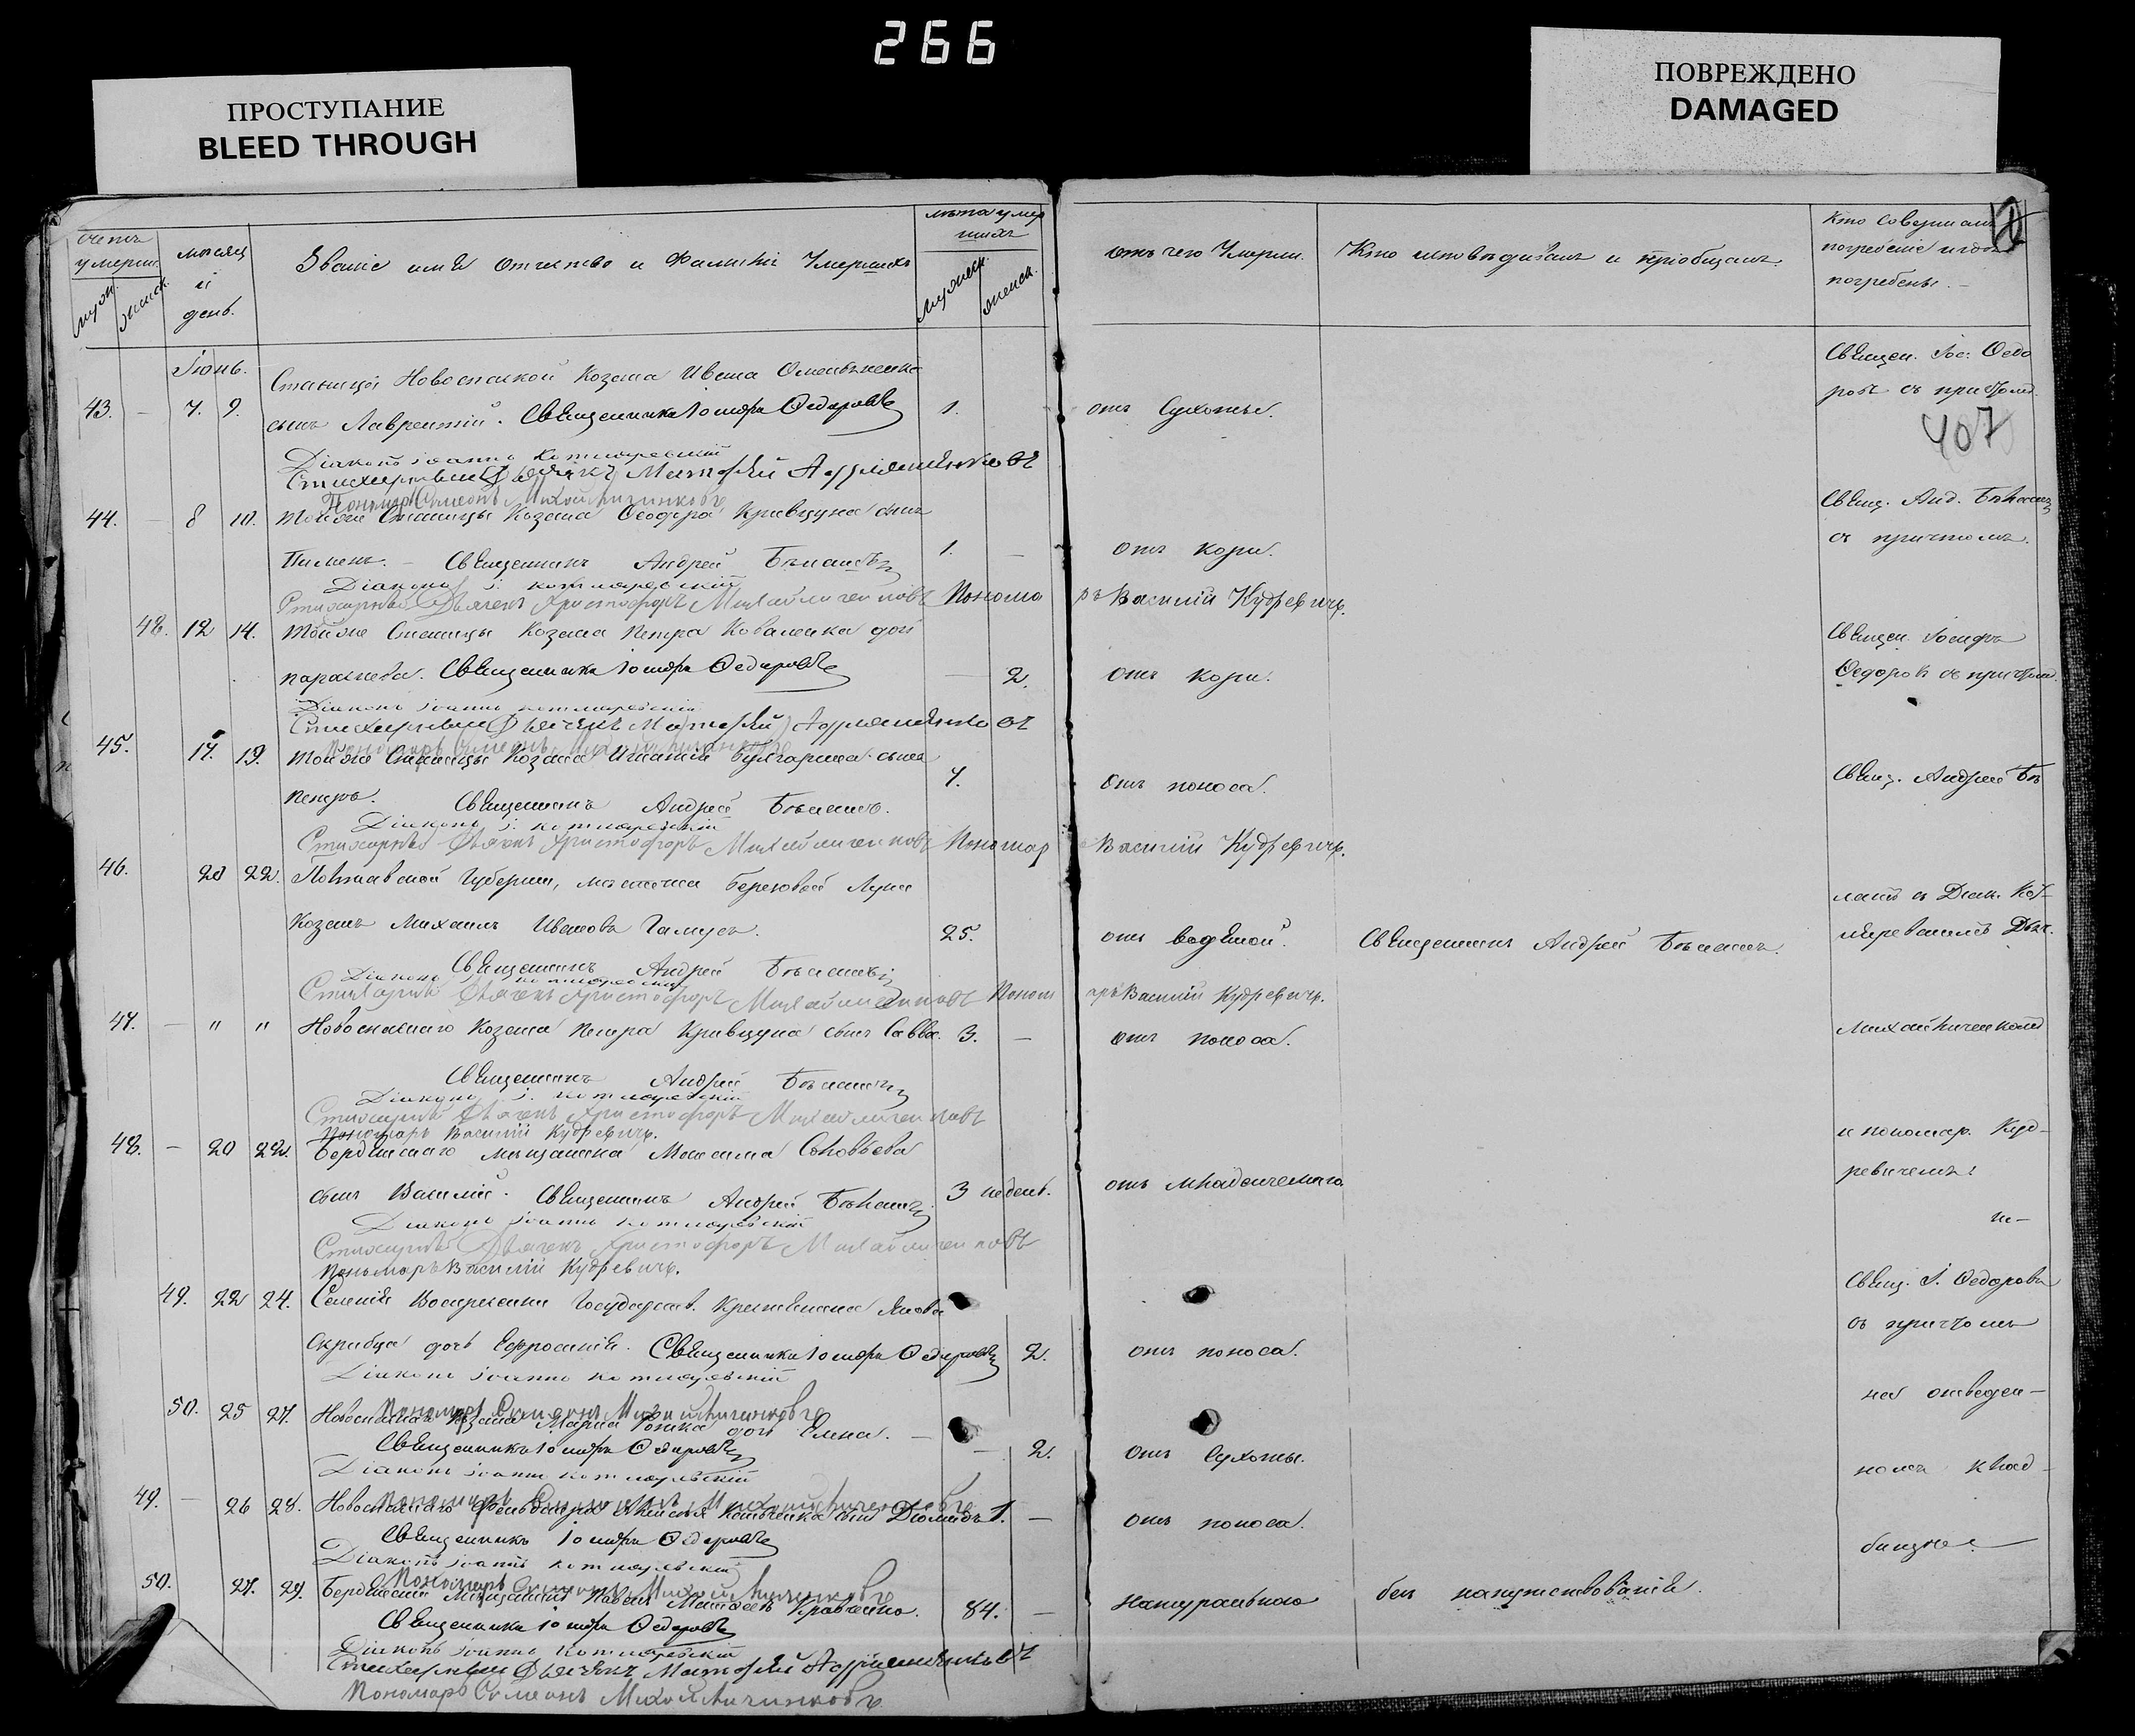 266
ПРОСТУПАНИЕ
BLEED THROUGH
ПОВРЕЖДЕНО
DAMAGED
счетъ умерш.
муж.
женск.
мѣсяц и день.
Званіе имя отчество и Фамилія Умершихъ
лѣта умершихъ
мужеск.
женск.
отъ чего Умерли.
Кто исповѣдывалъ и пріобщалъ.
Кто совершалъ погребеніе и гдѣ погребены.
407
Іюнь.
Станицы Новоспаской Козака Ивана Омельяненка
43. — 7. 9. сынъ Лаврентій. Священникъ Іосифъ Ѳедоровъ 1. отъ Сухотки.
Священ. Іос. Ѳедоровъ съ причтомъ.
Діаконъ Іоаннъ Котляревскій
Стихарный Дьячекъ
Пономарь Симеонъ Михайличенковъ
44. — 8 10. Тойже Станицы Козака Ѳеодора Кривцуна сынъ
Пименъ. — Священникъ Андрей 1. — отъ кори.
Свящ. Анд. съ причтомъ.
Діаконъ І. Котляревскій
Стихарный Дьячекъ Христофоръ Михайличенковъ Пономарь Василій Кудревичъ.
48. 12 14. Тойже Станицы Козака Петра Коваленка дочь
Параскева. Священникъ Іосифъ Ѳедоровъ — 2. отъ кори.
Священ. Іосифъ Ѳедоровъ съ причтом.
Діаконъ Іоаннъ Котляревскій
Стихарный Дьячекъ
45. 17. 19. Тойже Станицы Козака Игнатія Булгарина сынъ
Петръ. Священникъ Андрей 7. отъ поноса.
Свящ. Андрей
Діаконъ І. Котляревскій
Стихарный Дьячекъ Христофоръ Михайличенковъ Пономарь Василій Кудревичъ.
46. 20 22. Полтавской Губерніи, мѣстечка Березовой Луки
Козакъ Михаилъ Ивановъ 25. отъ водяной. Священникъ Андрей
Священникъ Андрей
Діаконъ Котляревскій
Стихарный Дьячекъ Христофоръ Михайличенковъ Пономарь Василій Кудревичъ.
47. — " " Новоспаскаго Козака Петра Кривцуна сынъ Савва. 3. — отъ поноса.
Михайличенкомъ
Священникъ Андрей
Діаконъ І. Котляревскій
Стихарный Дьячекъ Христофоръ Михайличенковъ
Пономарь Василій Кудревичъ.
48. — 20 22. Бердянскаго мѣщанина Максима Соловьева
и пономар. Кудревичемъ:
сынъ Василій. Священникъ Андрей 3 недель. отъ младенческаго
Діаконъ Іоаннъ Котляревскій
Стихарный Дьячекъ Христофоръ Михайличенковъ
Пономарь Василій Кудревичъ.
49. 22 24. Селенія Воскресенки Государств. Крестьянина Якова
Свящ. І. Ѳедоровъ съ причтомъ
Скрибца дочь Ефросинія. Священникъ Іосифъ Ѳедоровъ 2. отъ поноса.
Діаконъ Іоаннъ Котляревскій
на отведен-
Пономарь Симеонъ Михайличенковъ
50. 25 27. дочь Елена. —
Священникъ Іосифъ Ѳедоровъ — 2. отъ Сухотки.
Діаконъ Іоаннъ Котляревскій
номъ клад-
49. — 26 28. Новоспаскаго сынъ Діомидъ 1. — отъ поноса.
Священникъ Іосифъ Ѳедоровъ
Діаконъ Іоаннъ Котляревскій
бищѣ.
50. 27. 29. Бердянскій Мѣщанинъ Павелъ Кравченко. 84. — Натурально безъ напутствованія.
Священникъ Іосифъ Ѳедоровъ
Діаконъ Іоаннъ Котляревскій
Стихарный Дьячекъ
Пономарь Симеонъ Михайличенковъ